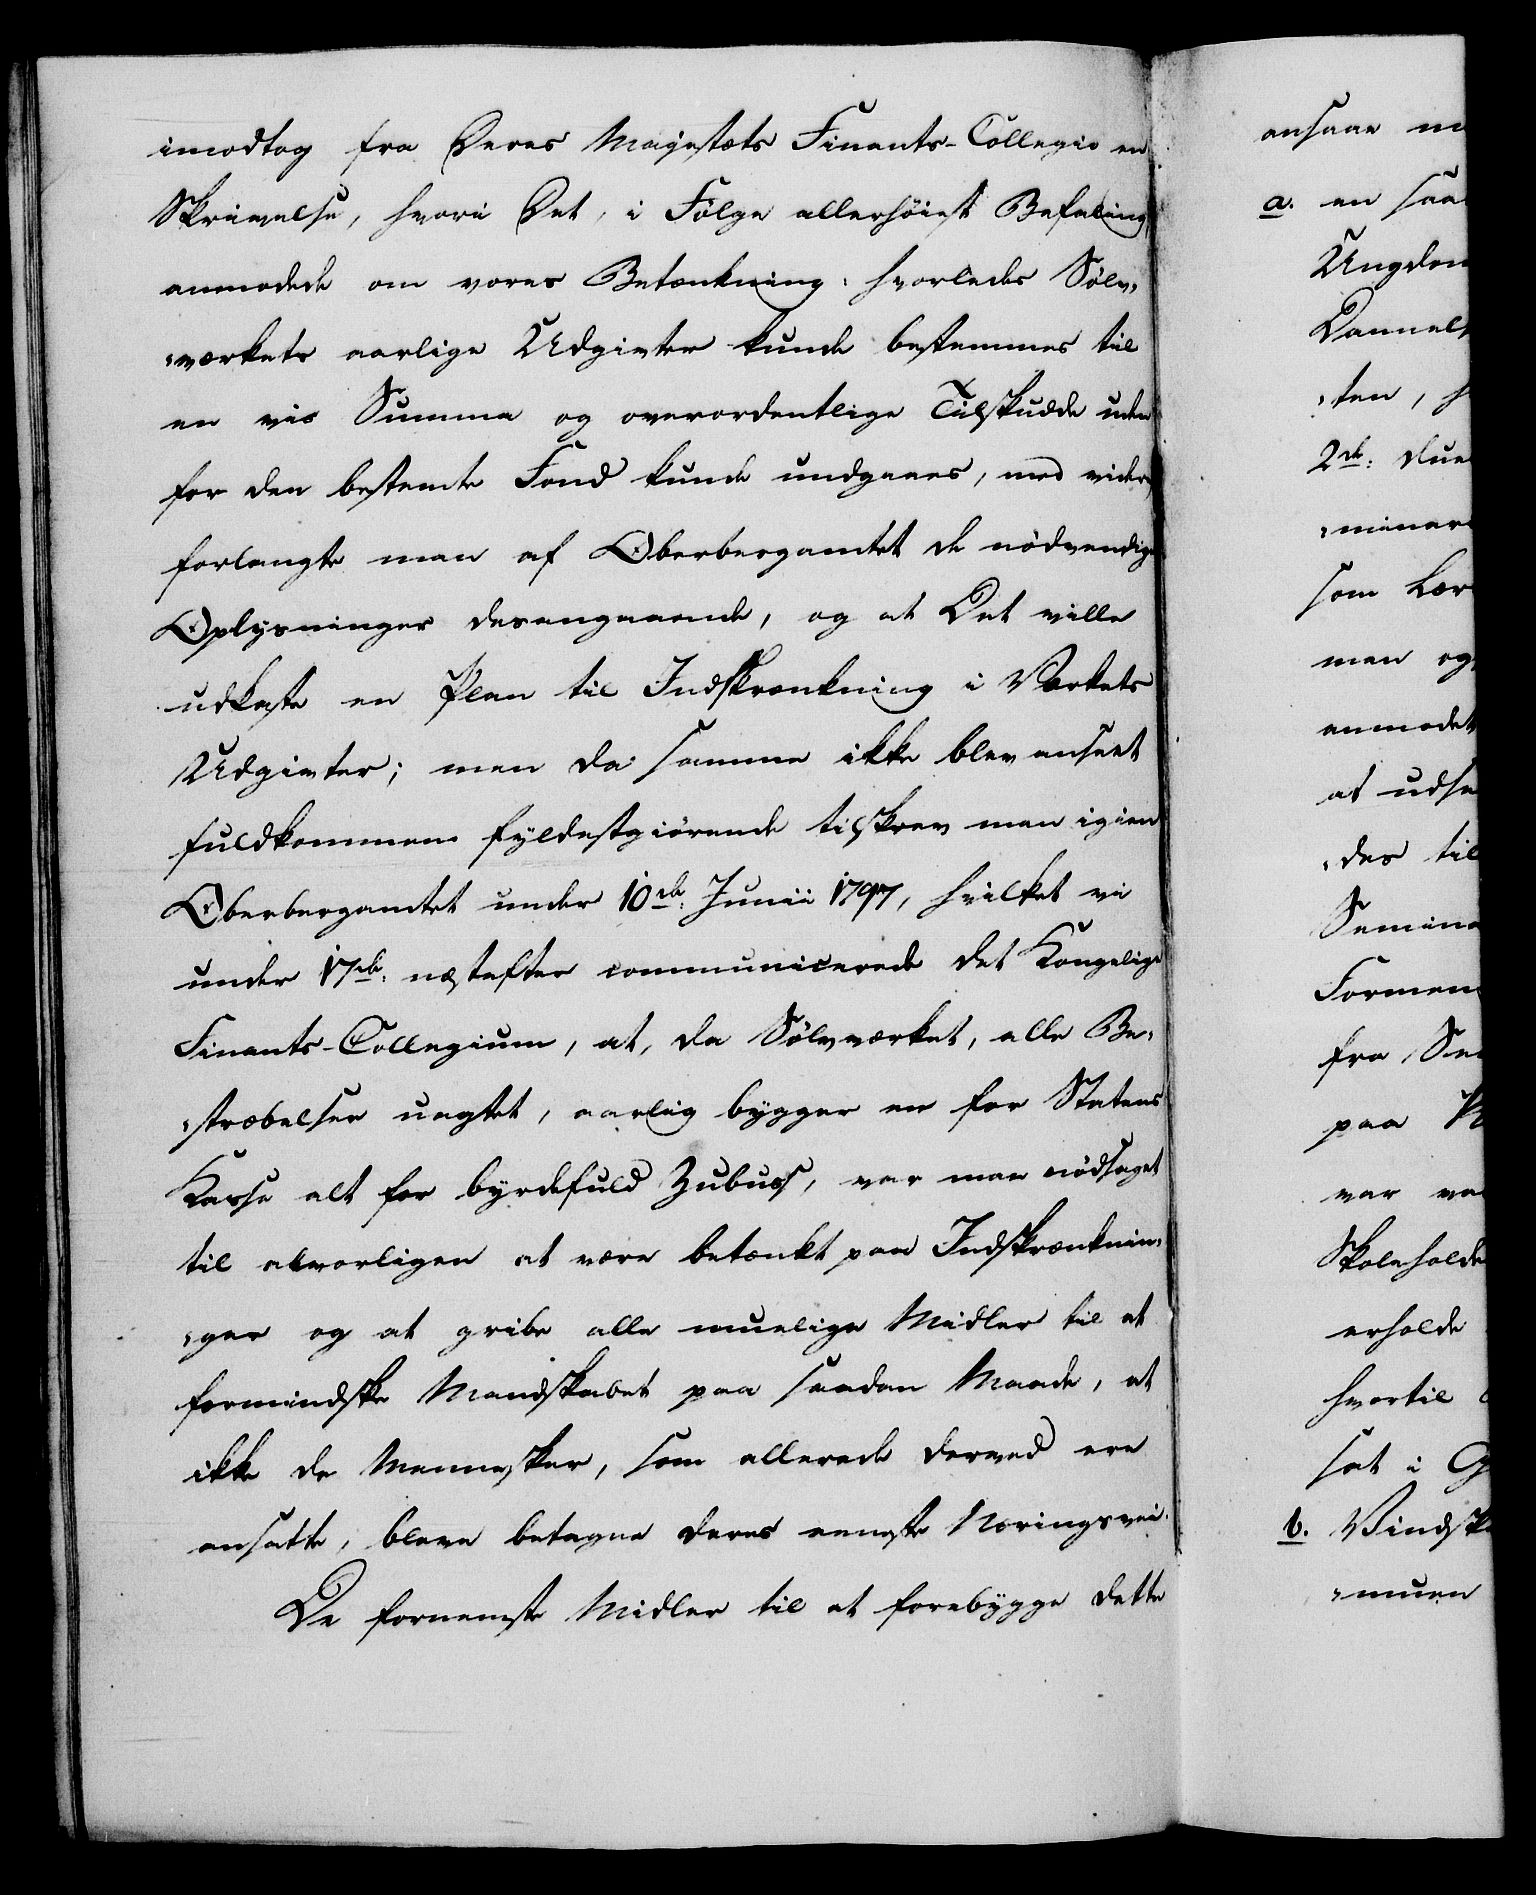 imodtog fra Deres Majestæts Finants-Collegio en
Skrivelse, hvori Det, i Følge allerhøiest Befaling,
anmodede om vores Betænkning: hvorledes Sølv-
værkets aarlige Udgivter kunde bestemmes til
en vis Summa og overordentlige Tilskudde uden
for den bestemte Fond kunde undgaaes, med videre,
forlangte man af Oberbergamtet de nødvendige
Oplysninger desangaaende, og at Det ville
udkaste en Plan til Indskrænkning i Værkets
Udgivter; men da samme ikke blev anseet
fuldkommen fyldestgiørende tilskrev man igien
Oberbergamtet under 10de Junii 1797, hvilket vi
under 17de: næstefter communicerede det Kongelige
Finants-Collegium, at, da Sølvværket, alle Be-
stræbelser uagtet, aarlig bygger en for Statens
Kasse alt for byrdefuld Zubuss, var man nødsaget
til alvorligen at være betænkt paa Indskrænknin-
ger og at gribe alle muelige Midler til at
formindske Mandskabet paa saadan Maade, at
ikke de Mennesker, som allerede derved ere
ansatte, bleve betagne deres eeneste Næringsvei.
De fornemste Midler til at forebygge dette
ansaae
a. en saa
2de: due
som Lær
man og
anmodet
at udse
des til
fra Se
paa
var
erholde
hvortil
sat i
b. Vindsk